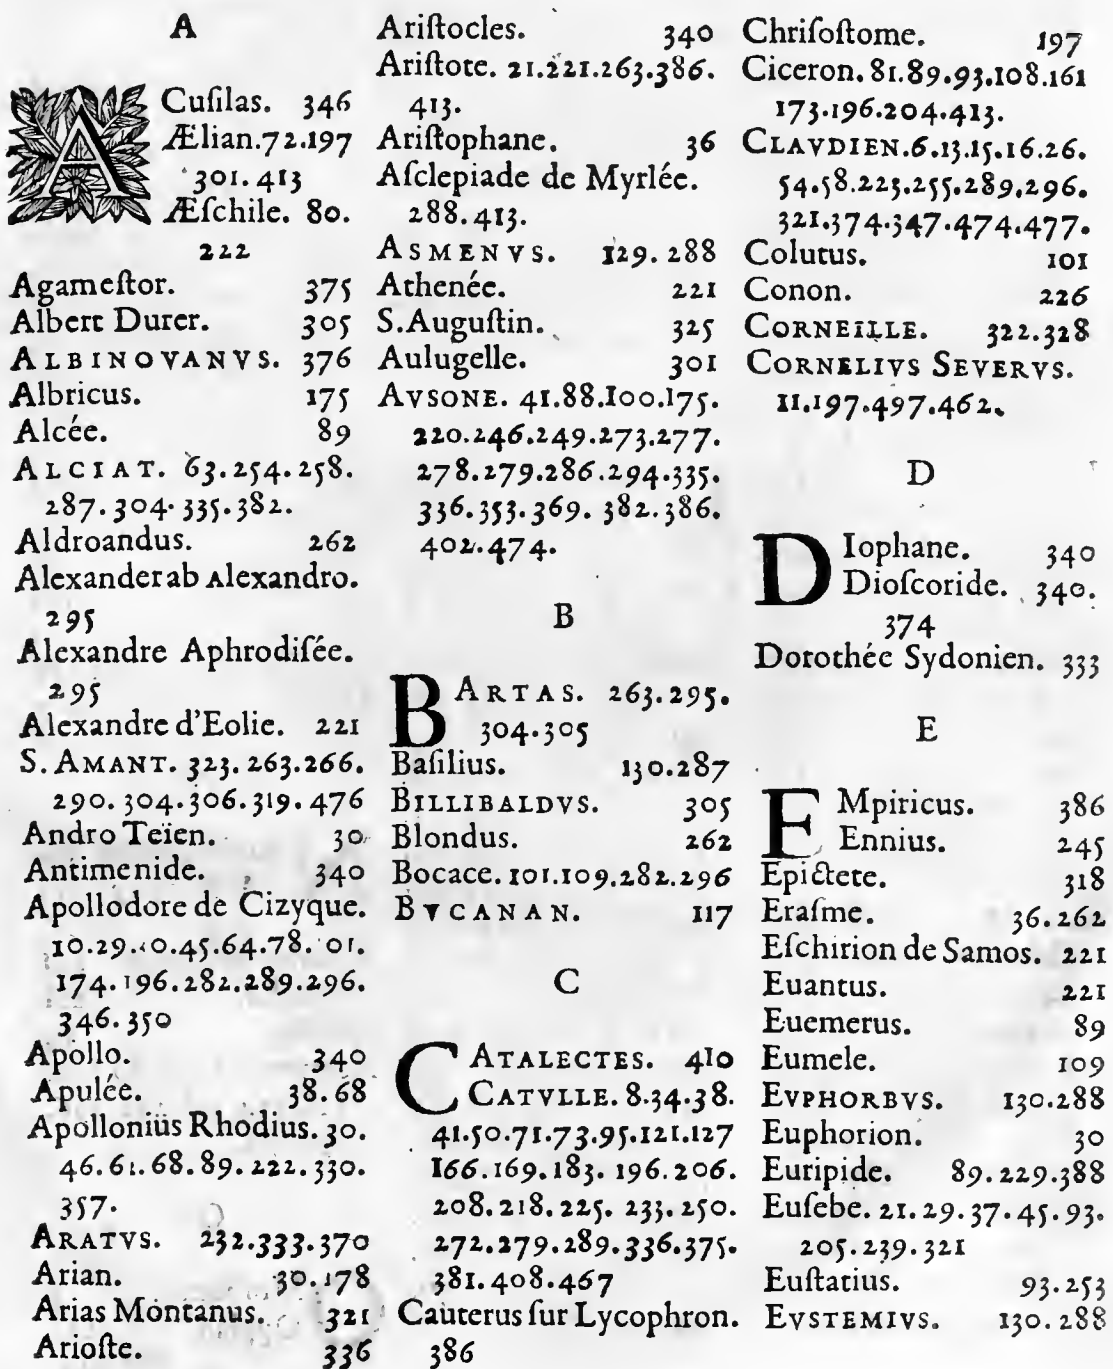 A
ACuſilas. 346
Ælian.72.197
301.413
Æſchile. 80.
222
Agameſtor. 375
Albert Durer. 305
ALBINOVANVS. 376
Albricus. 175
Alcée. 89
ALCIAT. 63.254.258.
287.304.335.382.
Aldroandus. 262
Alexander ab Alexandro.
295
Alexandre Aphrodiſée.
295
Alexandre d'Eolie. 221
S. AMANT. 323.263.266.
290.304.306.319.476
Andro Teïen. 30
Antimenide. 340
Apollodore de Cizyque.
10.29. 45.64.78.
174.196.282.289.296.
346.350
Apollo. 340
Apulée. 38.68
Apollonius Rhodius. 30.
46.61.68.89.222.330.
357.
ARATVS. 232.333.370
Arian. 30.178
Arias Montanus. 321
Arioſte. 336
Ariſtocles. 340
Ariſtote. 21.221.263.386.
413.
Ariſtophane. 36
Aſclepiade de Myrlée.
288.413.
ASMENVS. 129.288
Athenée. 221
S. Auguſtin. 325
Aulugelle. 301
AVSONE. 41.88.100.175.
220.246.249.273.277.
278.279.286.294.335.
336.353.369.382.386.
402.474.
B
BARTAS. 263.295.
304.305
Baſilius. 130.287
BILLIBALDVS. 305
Blondus. 262
Bocace. 101.109.282.296
BVCANAN. 117
C
CATALECTES. 410
CATVLLE. 8.34.38.
41.50.71.73.95.121.127
166.169.183.196.206.
208.218.225.233.250.
272.279.289.336.375.
381.408.467
Cauterus ſur Lycophron.
386
Chriſoſtome. 197
Ciceron. 81.89.93.108.161
173.196.204.413.
CLAVDIEN. 6.13.15.16.26.
54.58.223.255.289.296.
321.374.347.474.477.
Colutus. 101
Conon. 226
CORNEILLE. 322.328
CORNELIVS SEVERVS.
11.197.497.462.
D
DIophane. 340
Dioſcoride. 340.
374
Dorothée Sydonien. 333
E
EMpiricus. 386
Ennius. 245
Epictete. 318
Eraſme. 36.262
Eſchirion de Samos. 221
Euantus. 221
Euemerus. 89
Eumele. 109
EVPHORBVS. 130.288
Euphorion. 30
Euripide. 89.229.388
Euſebe. 21.29.37.45.93.
205.239.321
Euſtatius. 93.253
EVSTEMIVS. 130.288